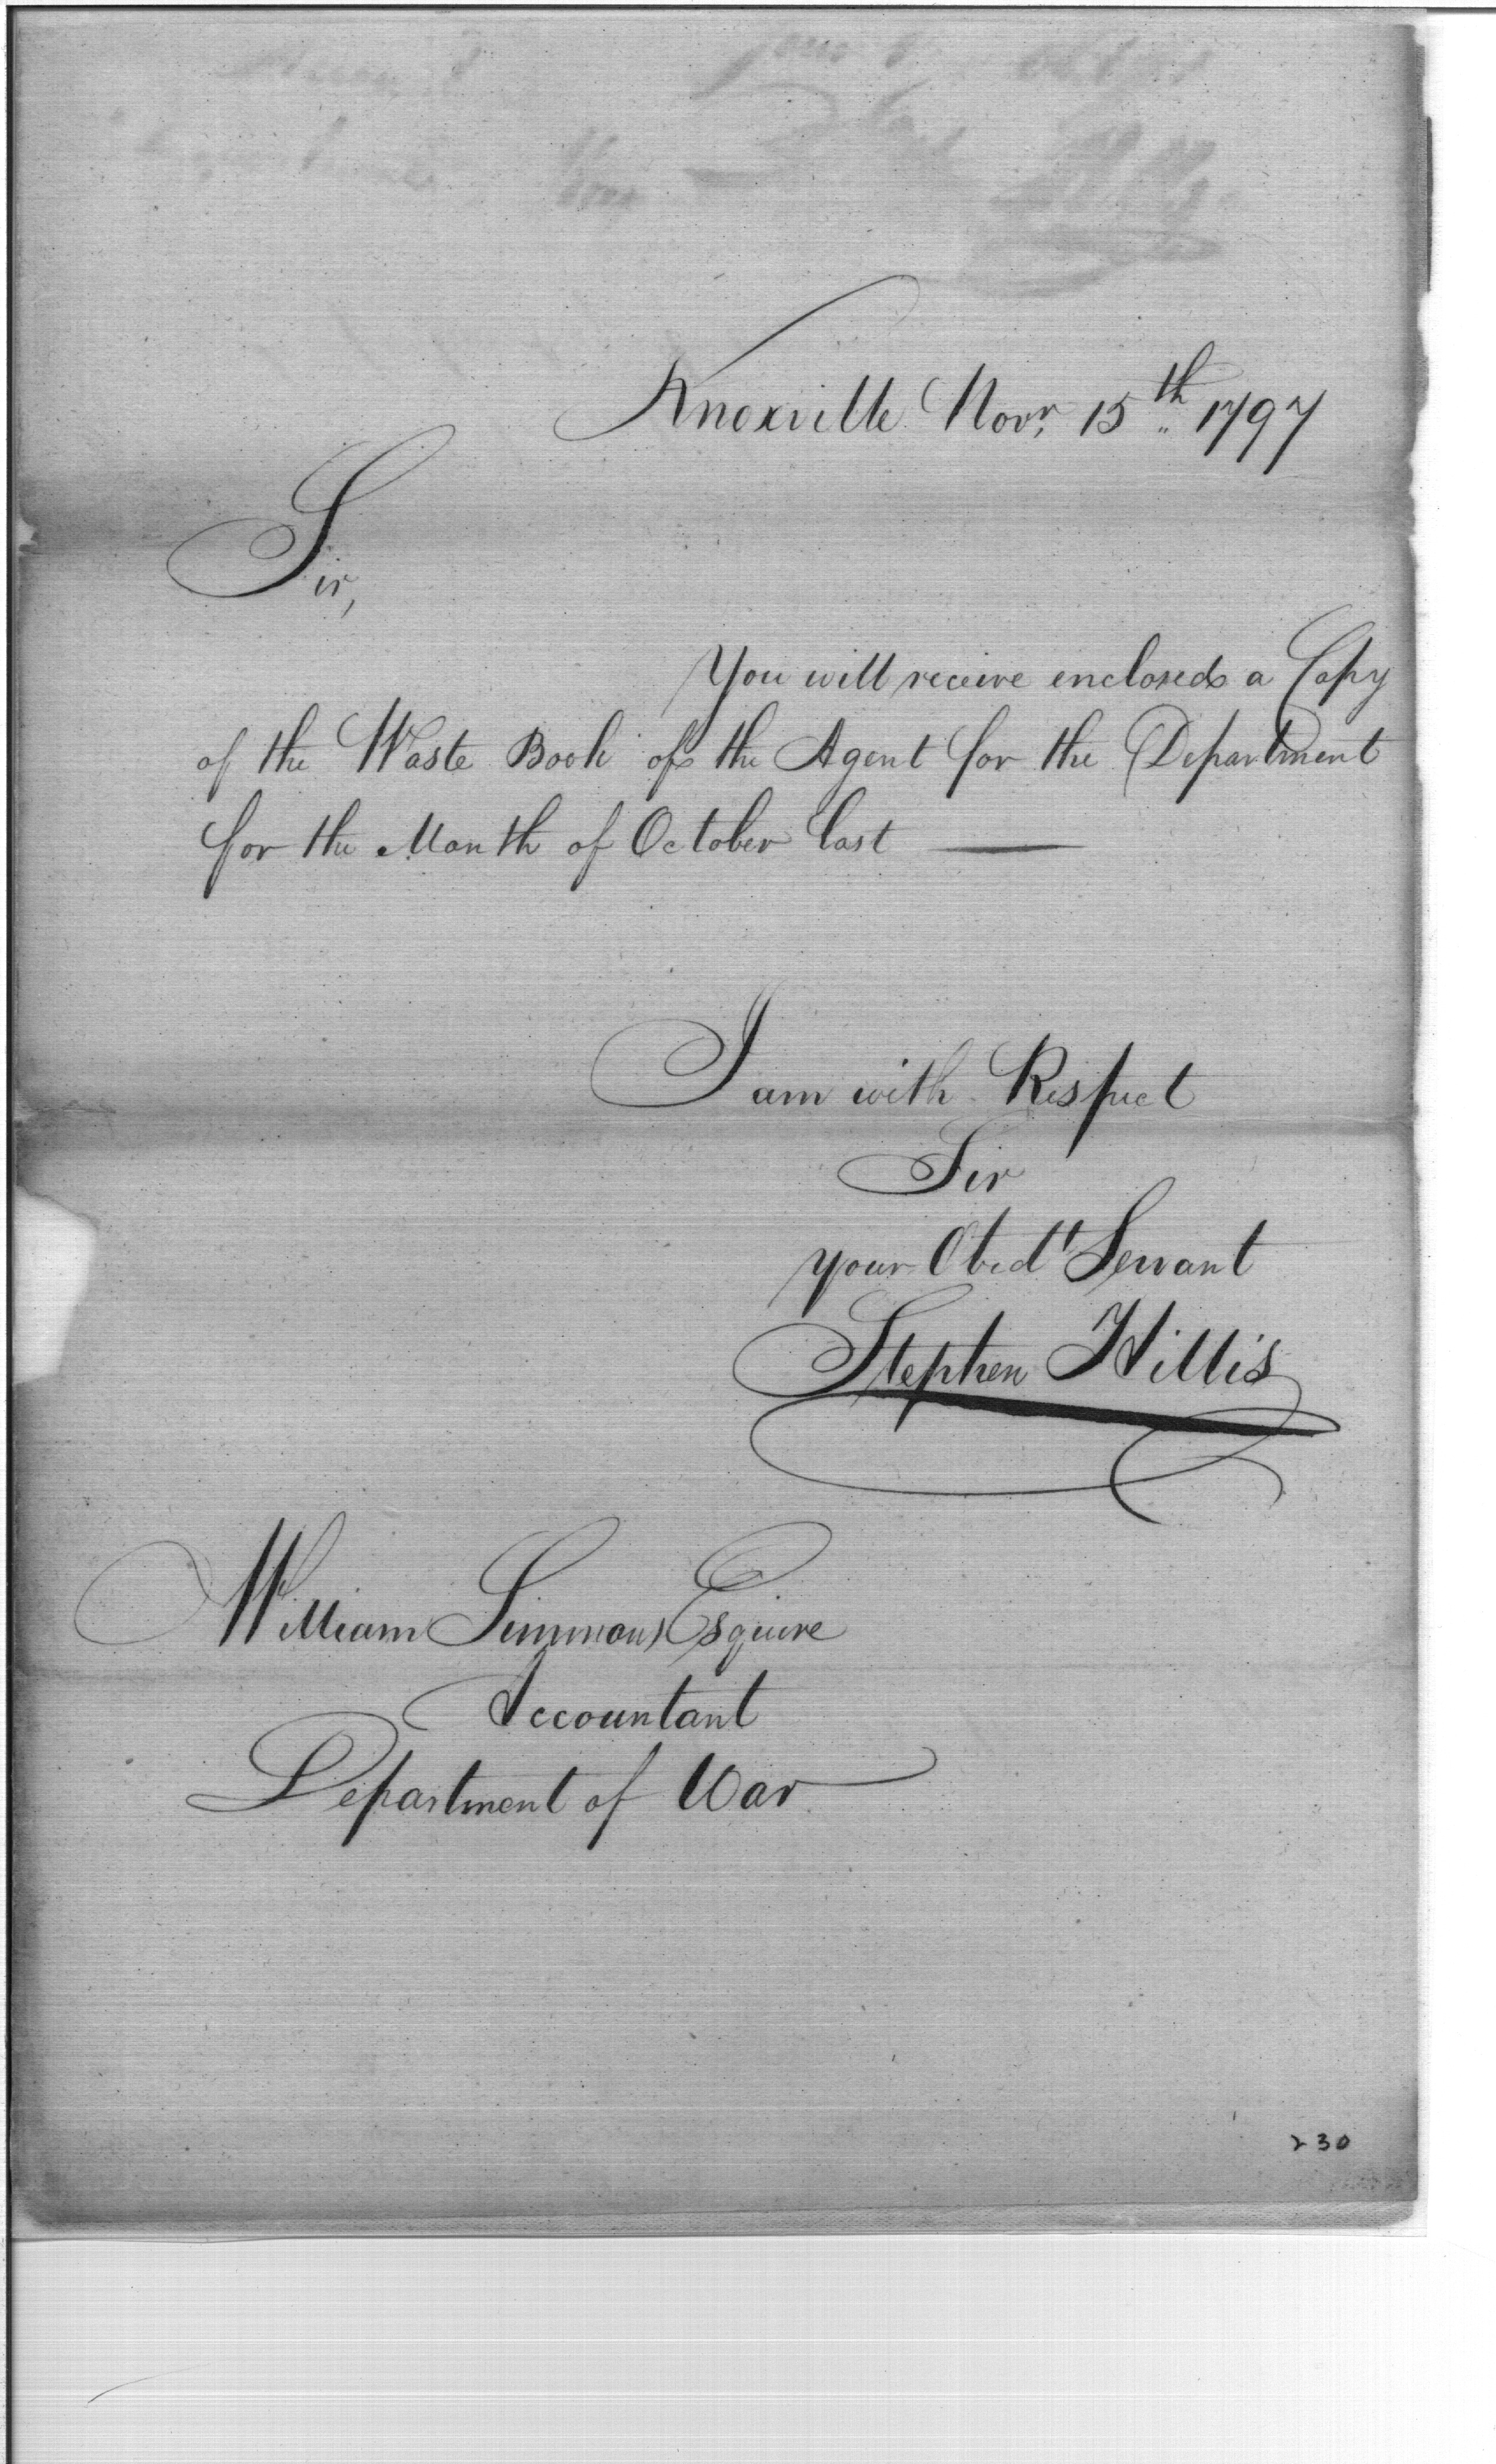 Knoxville Novr. 15th 1797
Sir,
You will receive enclosed a Copy
of the Waste Book of the Agent for the Department
for the Month of October last
I am with Respect
Sir
your Obedt Servant
Stephen Hillis
William Simmons Esquire
Accountant
Department of War
230